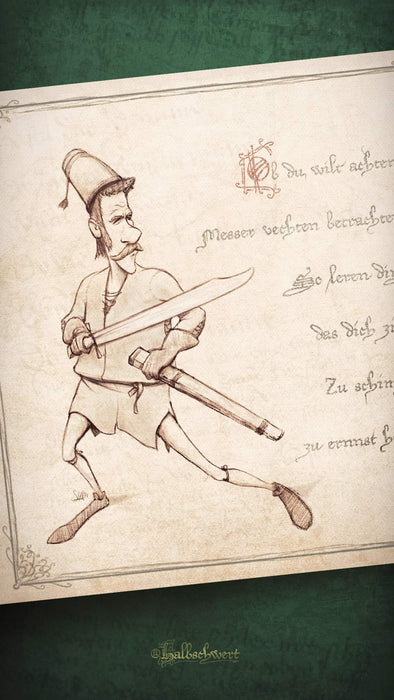 Ob du wilt achten
Messer vechten betrachte
So leren di
das dich zi
Zu schin
zu ernnst h
@Halbschwert